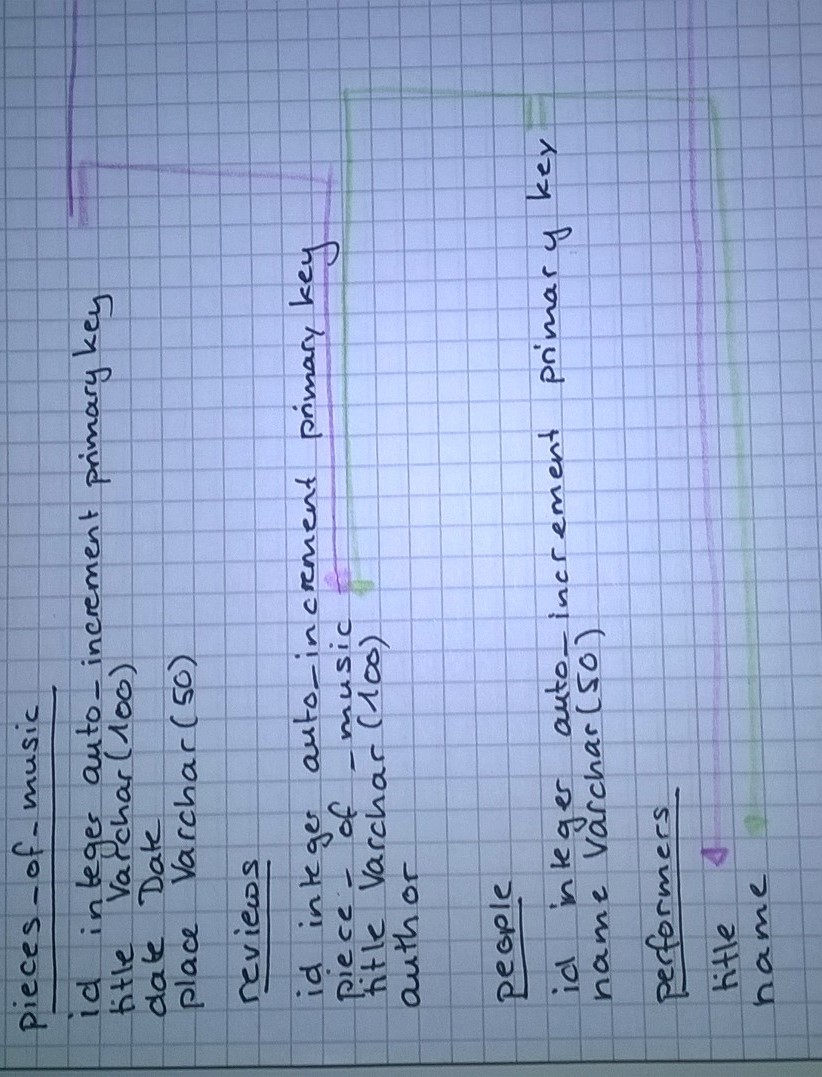 pieces-of-music
id integer auto-increment primary key
title Varchar(100)
date Date
place Varchar(50)
reviews
id integer auto-increment primary key
piece-of-music
title Varchar(100)
author
people
id integer auto-increment primary key
name Varchar(50)
performers
title
name